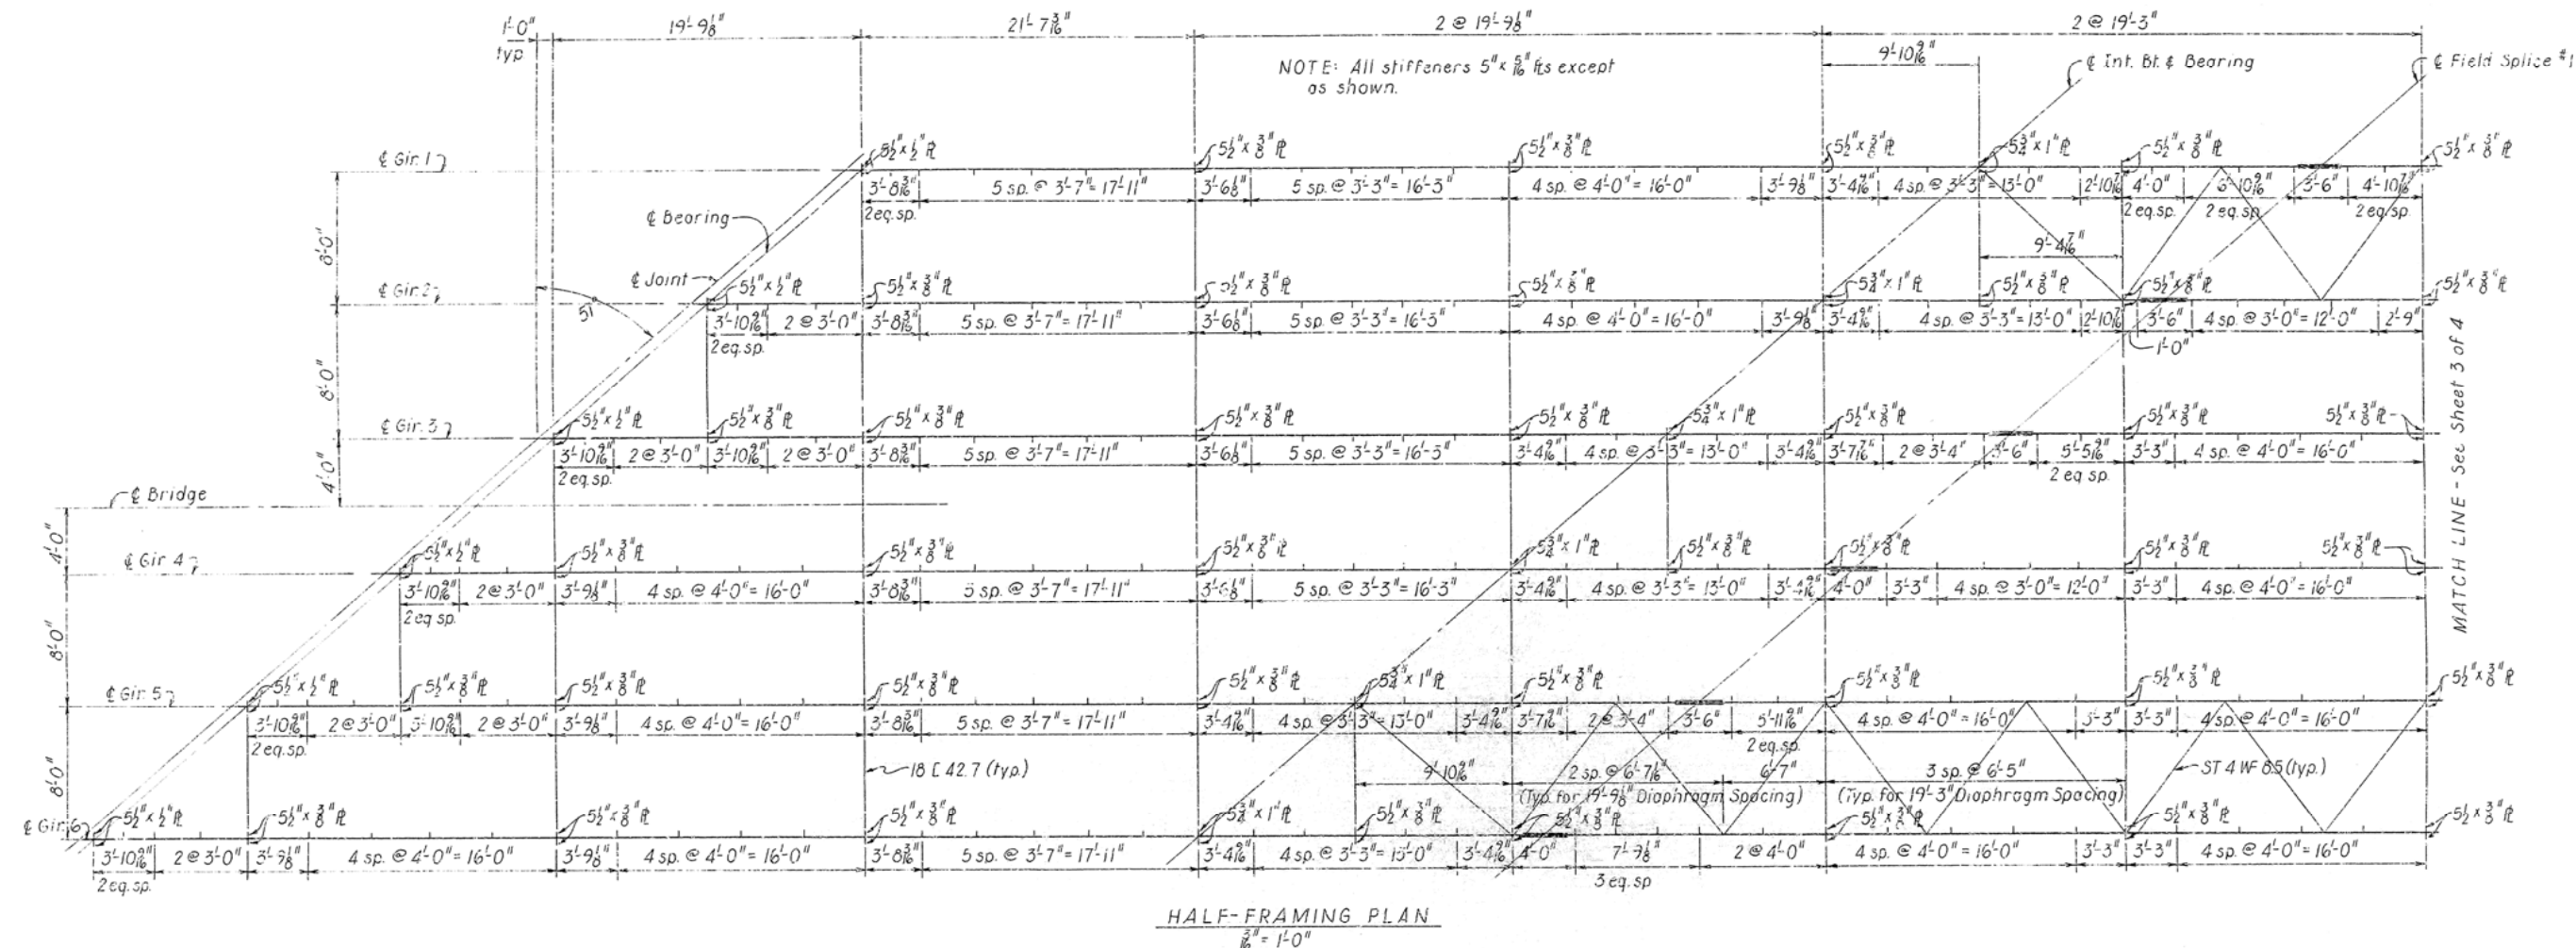 1'-0" 19'-9⅛" 21'-7 3/16" 2 @ 19'-9⅛" 2 @ 19'-3"
typ
9'-10 9/16"
NOTE: All stiffeners 5" x 5/16" ℞s except
as shown.
℄ Int. Bt. ℄ Bearing
℄ Field Splice #1
℄ Gir. 1 5½" x ½" ℞ 5½" x ⅜" ℞ 5½" x ⅜" ℞ 5½" x ⅜" ℞ 5¾" x 1" ℞ 5½" x ⅜" ℞ 5½" x ⅜" ℞
3'-8 3/16" 5 sp. @ 3'-7" = 17'-11" 3'-6⅛" 5 sp. @ 3'-3" = 16'-3" 4 sp. @ 4'-0" = 16'-0" 3'-9⅛" 3'-4 9/16" 4 sp. @ 3'-3" = 13'-0" 2'-10 7/16" 4'-0" 6'-10 9/16" 3'-6" 4'-10 7/16"
2 eq. sp. 2 eq. sp. 2 eq. sp. 2 eq. sp.
8'-0"
℄ Bearing
9'-4 7/16"
℄ Joint
℄ Gir. 2 5½" x ½" ℞ 5½" x ⅜" ℞ 5½" x ⅜" ℞ 5½" x ⅜" ℞ 5¾" x 1" ℞ 5½" x ⅜" ℞ 5½" x ⅜" ℞ 5½" x ⅜" ℞
51°
3'-10 9/16" 2 @ 3'-0" 3'-8 3/16" 5 sp. @ 3'-7" = 17'-11" 3'-6⅛" 5 sp. @ 3'-3" = 16'-3" 4 sp. @ 4'-0" = 16'-0" 3'-9⅛" 3'-4 9/16" 4 sp. @ 3'-3" = 13'-0" 2'-10 7/16" 3'-6" 4 sp. @ 3'-0" = 12'-0" 2'-9"
2 eq. sp.
1'-0"
8'-0"
℄ Gir. 3 5½" x ½" ℞ 5½" x ⅜" ℞ 5½" x ⅜" ℞ 5½" x ⅜" ℞ 5½" x ⅜" ℞ 5¾" x 1" ℞ 5½" x ⅜" ℞ 5½" x ⅜" ℞ 5½" x ⅜" ℞
3'-10 9/16" 2 @ 3'-0" 3'-10 9/16" 2 @ 3'-0" 3'-8 3/16" 5 sp. @ 3'-7" = 17'-11" 3'-6⅛" 5 sp. @ 3'-3" = 16'-3" 3'-4 9/16" 4 sp. @ 3'-3" = 13'-0" 3'-4 9/16" 3'-7 7/16" 2 @ 3'-4" 3'-6" 5'-5 9/16" 3'-3" 4 sp. @ 4'-0" = 16'-0"
2 eq. sp. 2 eq. sp.
4'-0"
℄ Bridge
MATCH LINE - See Sheet 3 of 4
4'-0"
℄ Gir. 4 5½" x ½" ℞ 5½" x ⅜" ℞ 5½" x ⅜" ℞ 5½" x ⅜" ℞ 5¾" x 1" ℞ 5½" x ⅜" ℞ 5½" x ⅜" ℞ 5½" x ⅜" ℞ 5½" x ⅜" ℞
3'-10 9/16" 2 @ 3'-0" 3'-9⅛" 4 sp. @ 4'-0" = 16'-0" 3'-8 3/16" 5 sp. @ 3'-7" = 17'-11" 3'-6⅛" 5 sp. @ 3'-3" = 16'-3" 3'-4 9/16" 4 sp. @ 3'-3" = 13'-0" 3'-4 9/16" 4'-0" 3'-3" 4 sp. @ 3'-0" = 12'-0" 3'-3" 4 sp. @ 4'-0" = 16'-0"
2 eq. sp.
8'-0"
℄ Gir. 5 5½" x ½" ℞ 5½" x ⅜" ℞ 5½" x ⅜" ℞ 5½" x ⅜" ℞ 5½" x ⅜" ℞ 5¾" x 1" ℞ 5½" x ⅜" ℞ 5½" x ⅜" ℞ 5½" x ⅜" ℞ 5½" x ⅜" ℞
3'-10 9/16" 2 @ 3'-0" 3'-10 9/16" 2 @ 3'-0" 3'-9⅛" 4 sp. @ 4'-0" = 16'-0" 3'-8 3/16" 5 sp. @ 3'-7" = 17'-11" 3'-4 9/16" 4 sp. @ 3'-3" = 13'-0" 3'-4 9/16" 3'-7 9/16" 2 @ 3'-4" 3'-6" 5'-11 9/16" 4 sp. @ 4'-0" = 16'-0" 3'-3" 3'-3" 4 sp. @ 4'-0" = 16'-0"
2 eq. sp. 2 eq. sp.
8'-0"
18 [ 42.7 (typ.) 9'-10 9/16" 2 sp. @ 6'-7 1/16" 6'-7" 3 sp. @ 6'-5" ST 4 WF 8.5 (typ.)
(Typ. for 19'-9⅛" Diaphragm Spacing) (Typ. for 19'-3" Diaphragm Spacing)
℄ Gir. 6 5½" x ½" ℞ 5½" x ⅜" ℞ 5½" x ⅜" ℞ 5½" x ⅜" ℞ 5¾" x 1" ℞ 5½" x ⅜" ℞ 5½" x ⅜" ℞ 5½" x ⅜" ℞ 5½" x ⅜" ℞ 5½" x ⅜" ℞
3'-10 9/16" 2 @ 3'-0" 3'-9⅛" 4 sp. @ 4'-0" = 16'-0" 3'-9⅛" 4 sp. @ 4'-0" = 16'-0" 3'-8 3/16" 5 sp. @ 3'-7" = 17'-11" 3'-4 9/16" 4 sp. @ 3'-3" = 13'-0" 3'-4 9/16" 4'-0" 7'-9⅛" 2 @ 4'-0" 4 sp. @ 4'-0" = 16'-0" 3'-3" 3'-3" 4 sp. @ 4'-0" = 16'-0"
2 eq. sp. 3 eq. sp
HALF-FRAMING PLAN
3/16" = 1'-0"